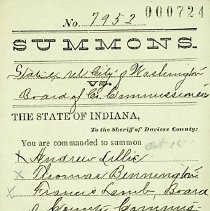 000724
No. 7952
SUMMONS.
State ex rel City of Washington
vs.
Board of Co. Commissioners
THE STATE OF INDIANA,
To the Sheriff of Daviess County:
You are commanded to summon
X Andrew Lillie
X Thomas Pennington
X Francis Lamb Board
of County Commis-